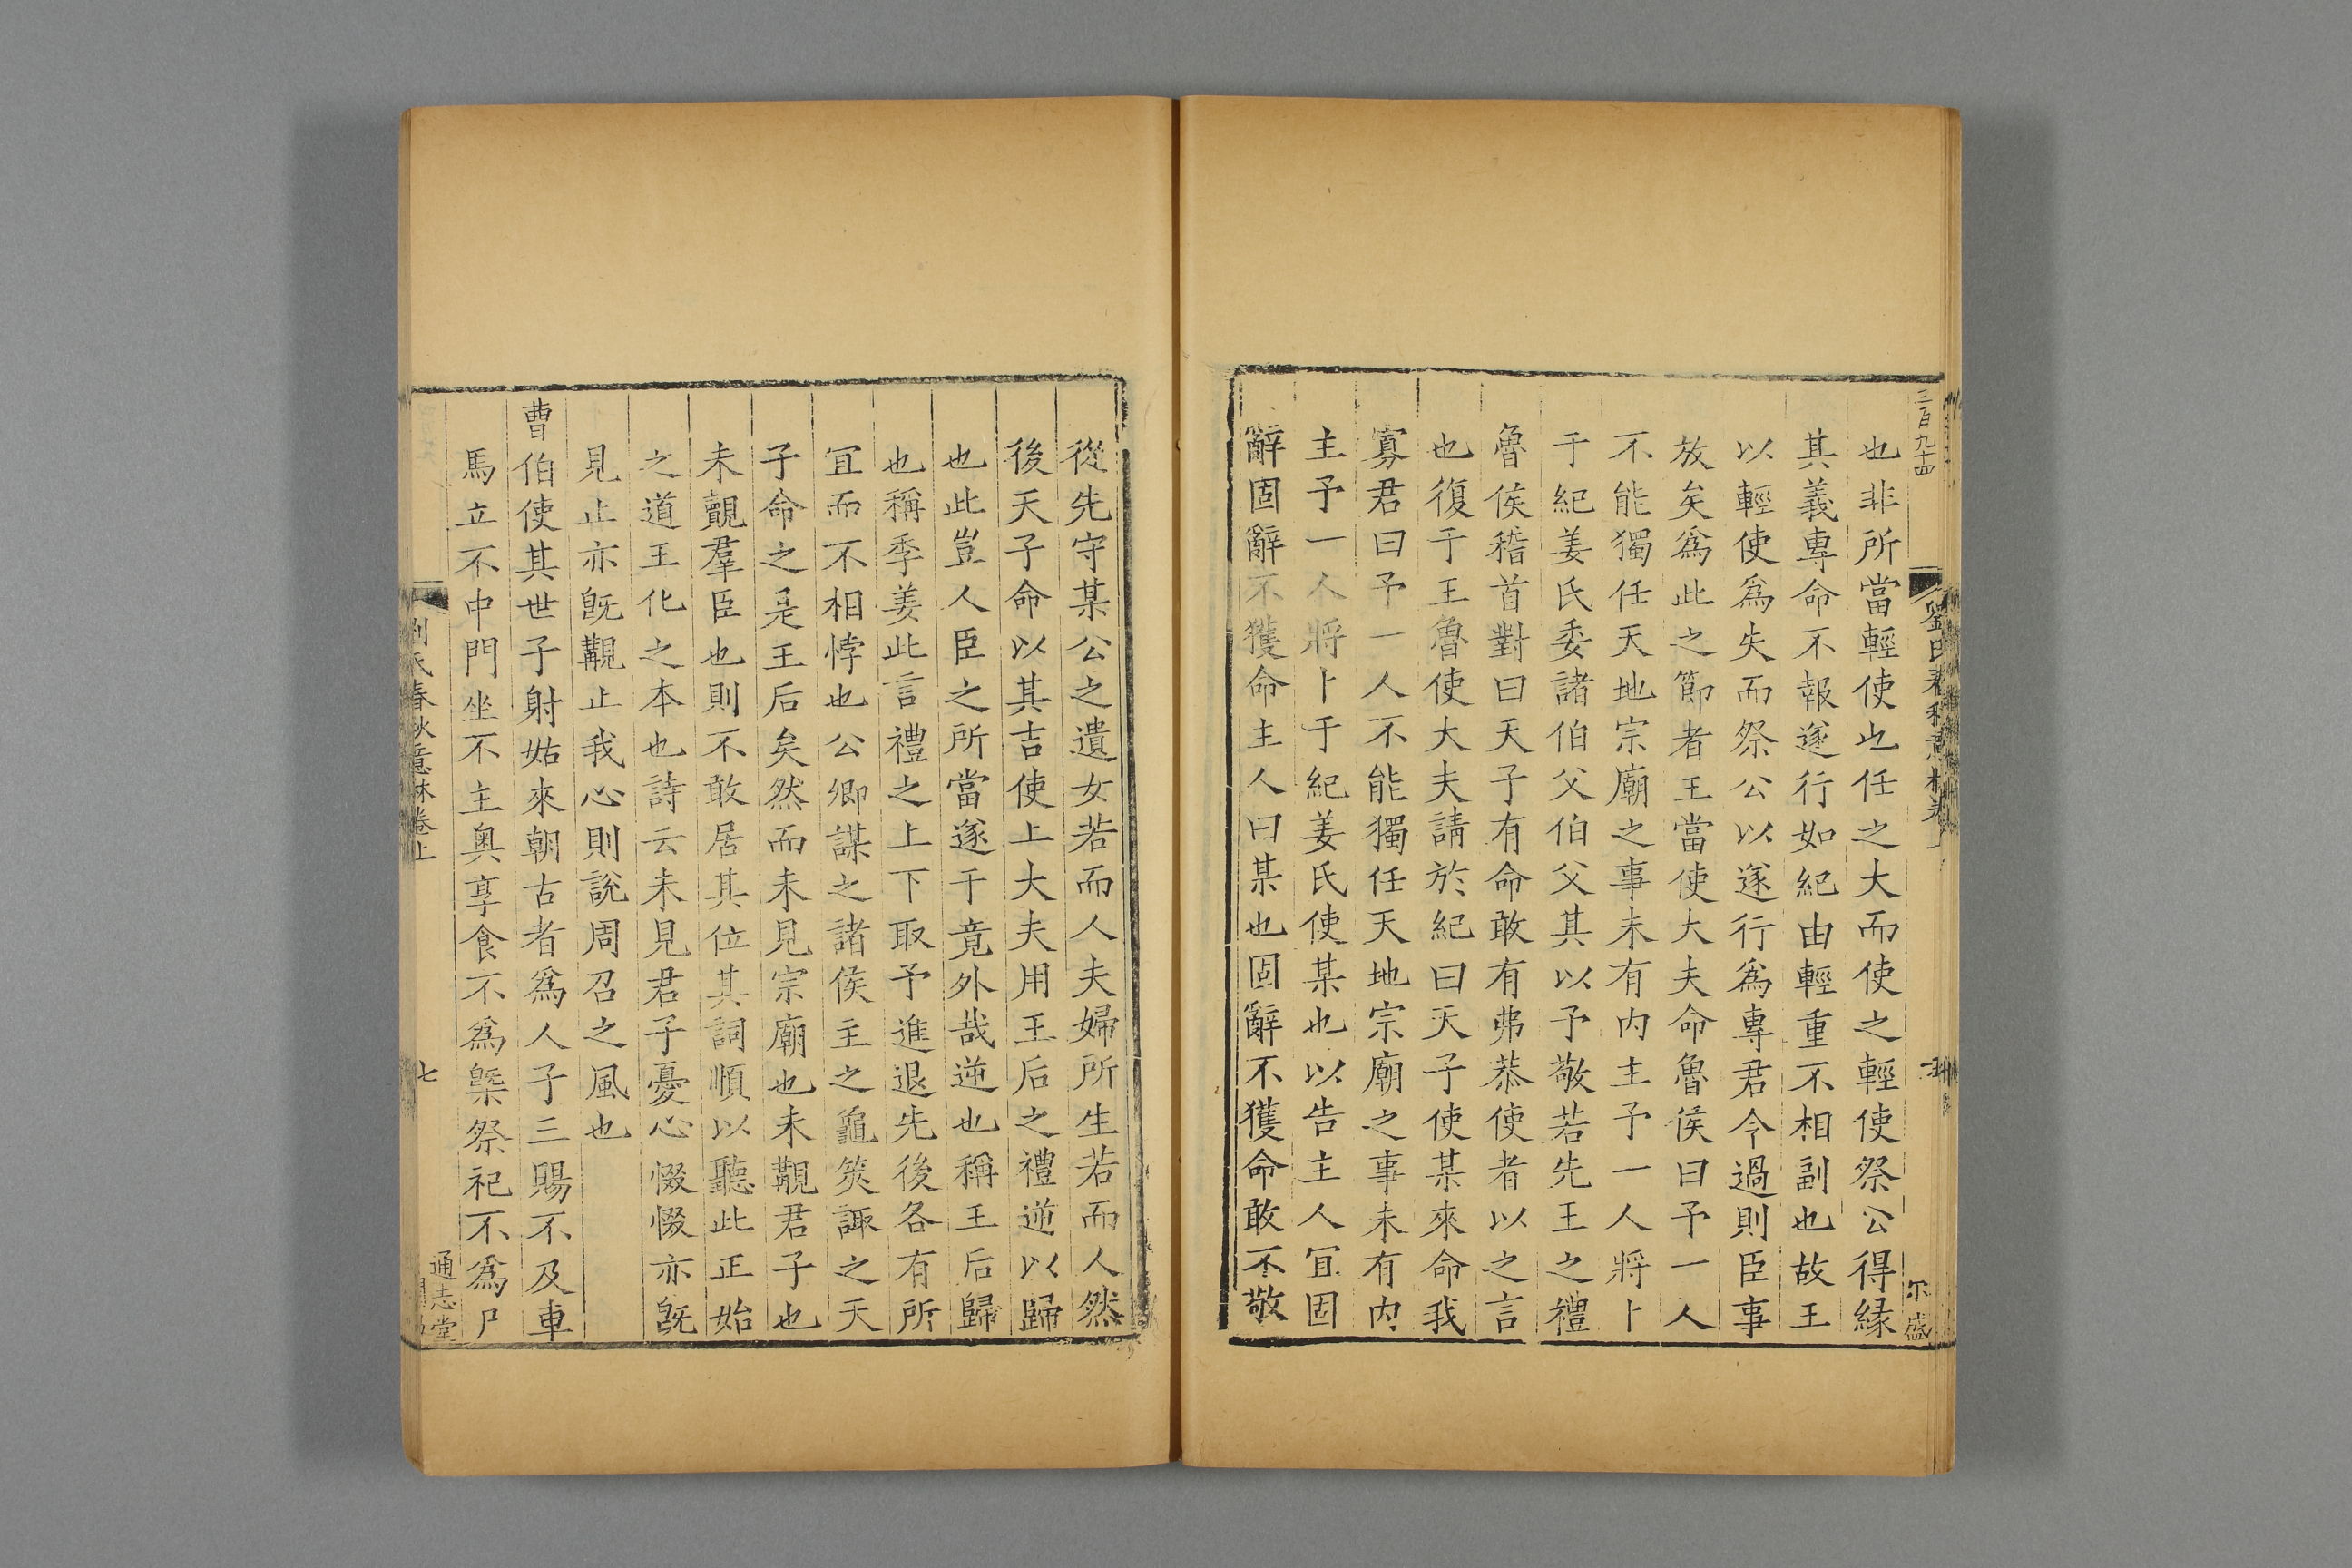 三百九十四
也非所當輕使也任之大而使之輕使祭公得緣
其義專命不報遂行如紀由輕重不相副也故王
以輕使爲失而祭公以遂行爲專君今過則臣事
放矣爲此之節者王當使大夫命魯侯曰予一人
不能獨任天地宗廟之事未有内主予一人將卜
于紀姜氏委諸伯父伯父其以予敬若先王之禮
魯侯稽首對曰天子有命敢有弗恭使者以之言
也復于王魯使大夫請於紀曰天子使某來命我
寡君曰予一人不能獨任天地宗廟之事未有内
主予一人將卜于紀姜氏使某也以告主人冝固
辭固辭不獲命主人曰某也固辭不獲命敢不敬
從先守某公之遺女若而人夫婦所生若而人然
後天子命以其吉使上大夫用王后之禮逆以歸
也此豈人臣之所當遂于竟外哉逆也稱王后歸
也稱季姜此言禮之上下取予進退先後各有所
冝而不相悖也公卿謀之諸侯主之龜筴諏之天
子命之是王后矣然而未見宗廟也未覯君子也
未覿羣臣也則不敢居其位其詞順以聽此正始
之道王化之本也詩云未見君子憂心惙惙亦旣
見止亦旣覯止我心則說周召之風也
曹伯使其世子射姑來朝古者爲人子三賜不及車
馬立不中門坐不主奥享食不爲槩祭祀不爲尸
劉氏春秋意林卷上
七
通志堂